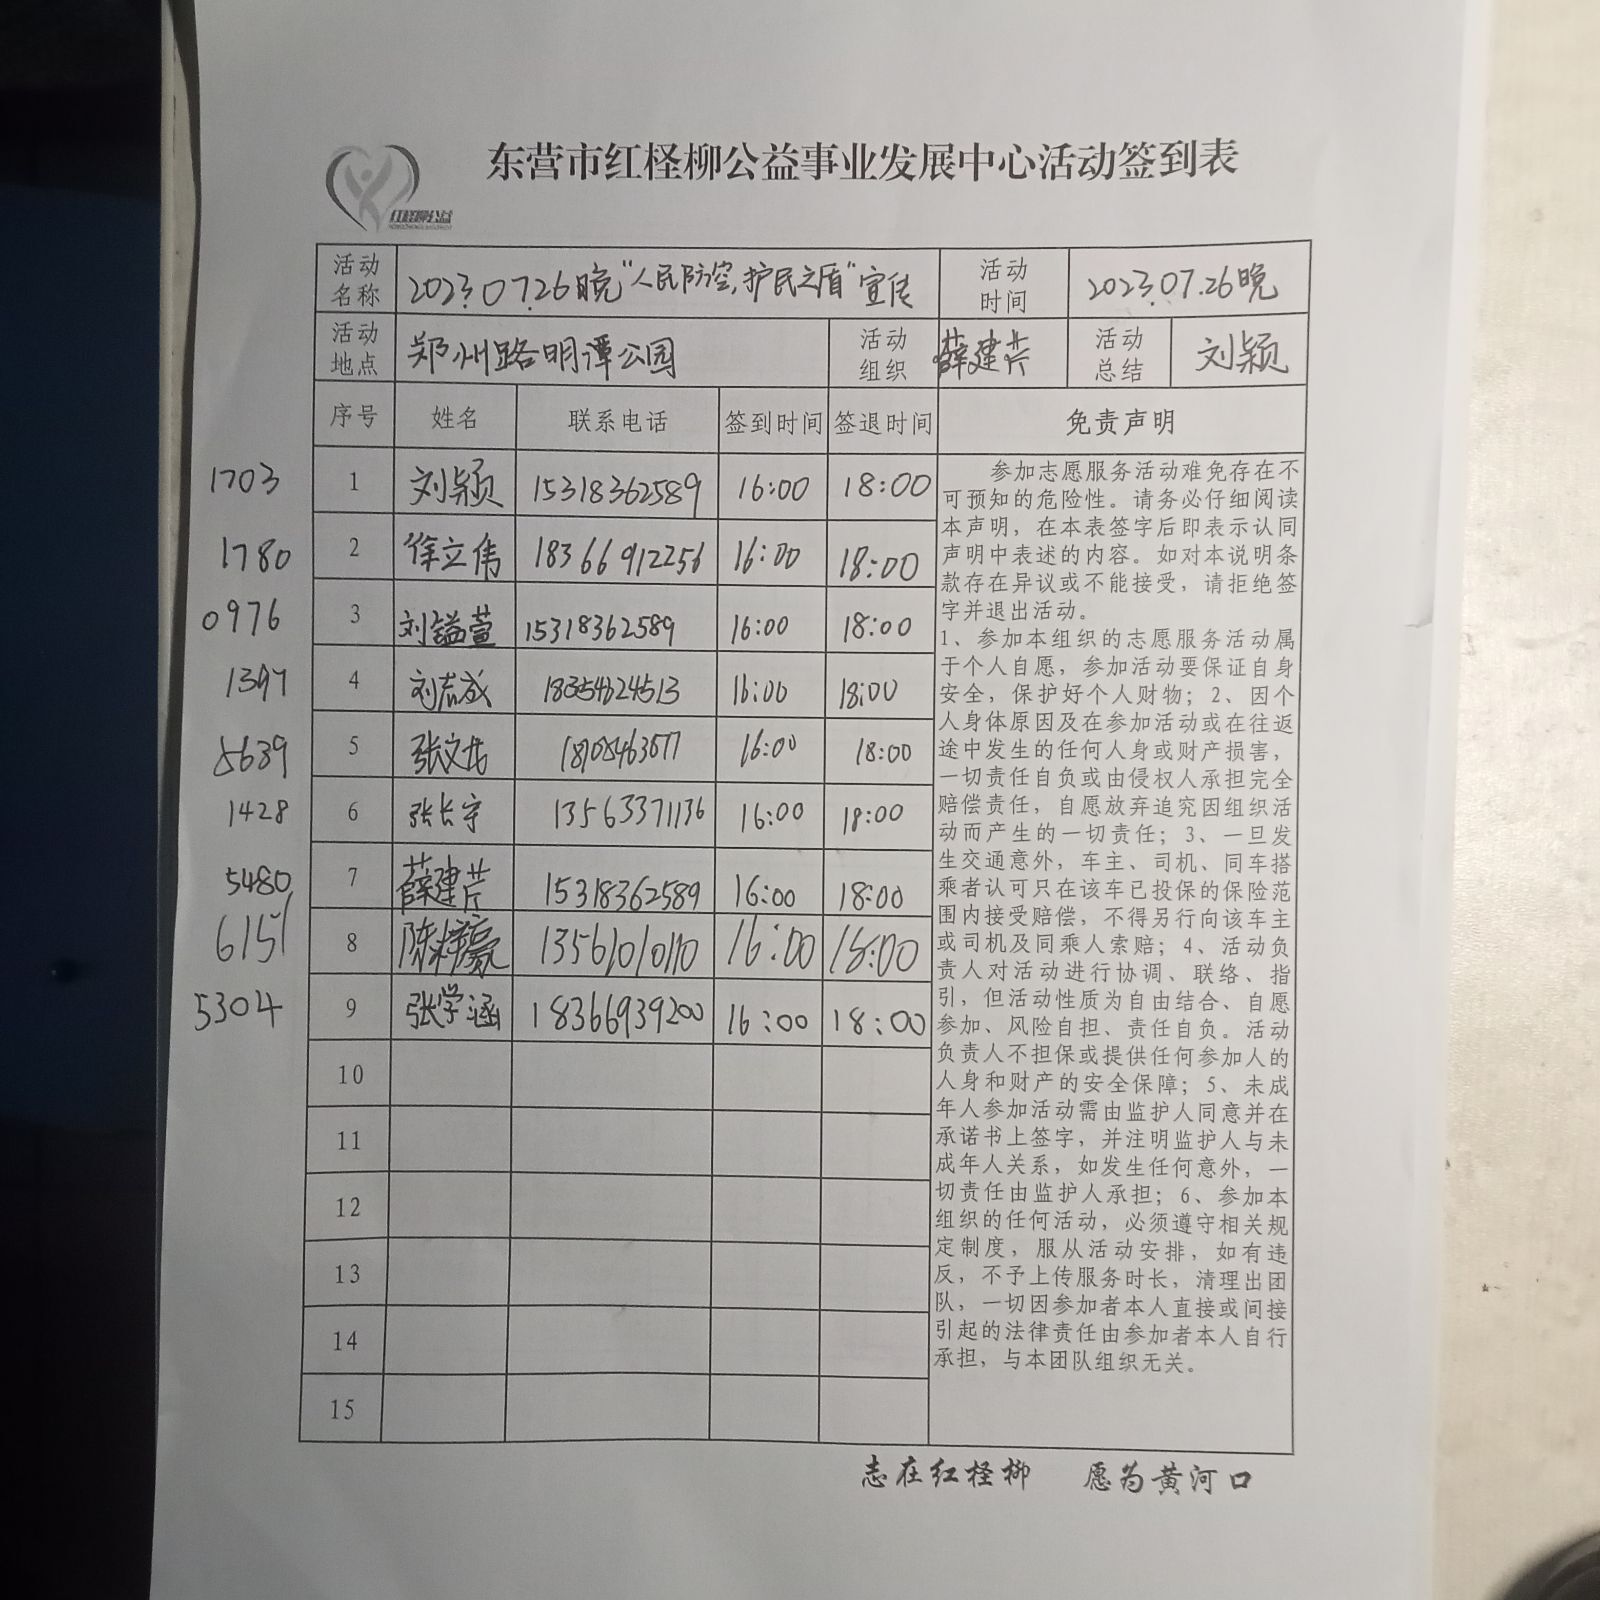 东营市红柽柳公益事业发展中心活动签到表
红柽柳公益
活动名称 2023.07.26晚“人民防空,护民之盾”宣传 活动时间 2023.07.26晚
活动地点 郑州路明潭公园 活动组织 薛建芹 活动总结 刘颖
序号 姓名 联系电话 签到时间 签退时间 免责声明
1703 1 刘颖 15318362589 16:00 18:00
1780 2 徐立伟 18366912256 16:00 18:00
0976 3 刘镒萱 15318362589 16:00 18:00
1397 4 刘志成 18354624513 16:00 18:00
8639 5 张文龙 16:00 18:00
1428 6 张长宇 13563371136 16:00 18:00
5480 7 薛建芹 15318362589 16:00 18:00
6151 8 陈梓豪 13561010110 16:00 18:00
5304 9 张学涵 18366939200 16:00 18:00
10
11
12
13
14
15
参加志愿服务活动难免存在不
可预知的危险性。请务必仔细阅读
本声明，在本表签字后即表示认同
声明中表述的内容。如对本说明条
款存在异议或不能接受，请拒绝签
字并退出活动。
1、参加本组织的志愿服务活动属
于个人自愿，参加活动要保证自身
安全，保护好个人财物；2、因个
人身体原因及在参加活动或在往返
途中发生的任何人身或财产损害，
一切责任自负或由侵权人承担完全
赔偿责任，自愿放弃追究因组织活
动而产生的一切责任；3、一旦发
生交通意外，车主、司机、同车搭
乘者认可只在该车已投保的保险范
围内接受赔偿，不得另行向该车主
或司机及同乘人索赔；4、活动负
责人对活动进行协调、联络、指
引，但活动性质为自由结合、自愿
参加、风险自担、责任自负。活动
负责人不担保或提供任何参加人的
人身和财产的安全保障；5、未成
年人参加活动需由监护人同意并在
承诺书上签字，并注明监护人与未
成年人关系，如发生任何意外，一
切责任由监护人承担；6、参加本
组织的任何活动，必须遵守相关规
定制度，服从活动安排，如有违
反，不予上传服务时长，清理出团
队，一切因参加者本人直接或间接
引起的法律责任由参加者本人自行
承担，与本团队组织无关。
志在红柽柳 愿为黄河口